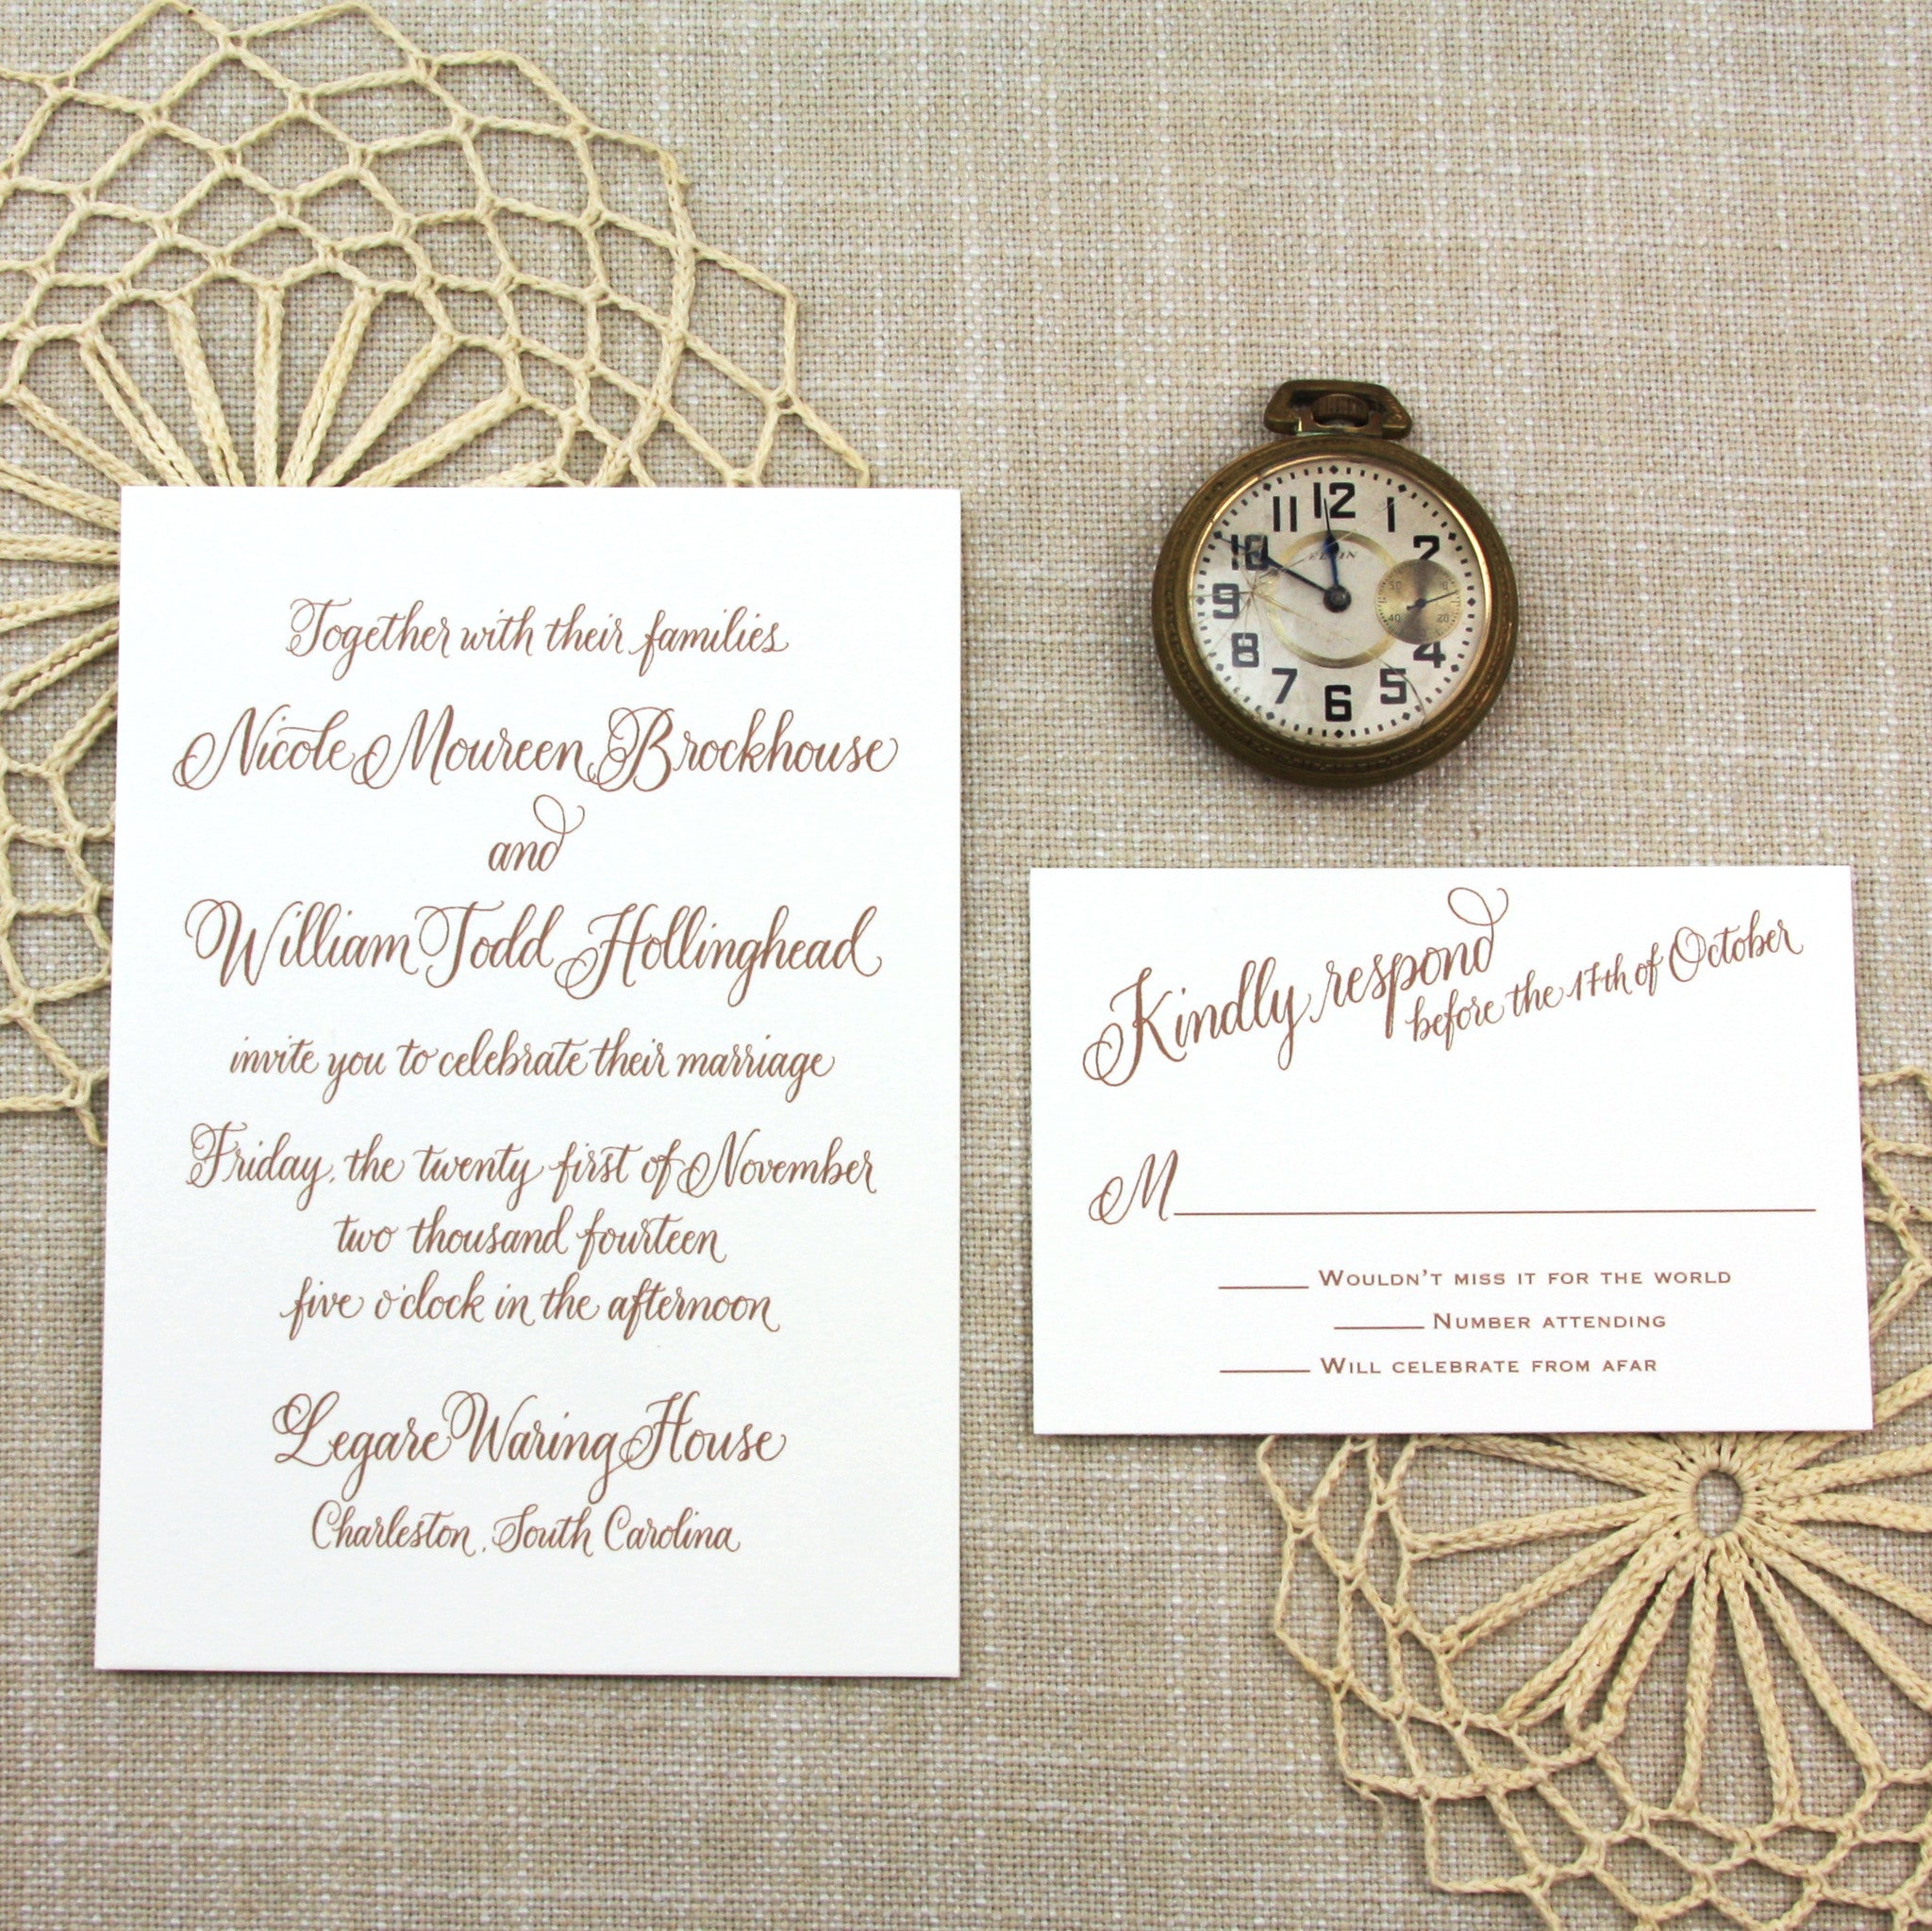 Together with their families
Nicole Moureen Brockhouse
and
William Todd Hollinghead
invite you to celebrate their marriage
Friday, the twenty first of November
two thousand fourteen
five o'clock in the afternoon
Legare Waring House
Charleston, South Carolina
11 12 1
10 2
ELGIN
9
8 4
7 6 5
50
40 20
Kindly respond
before the 17th of October
M
Wouldn't miss it for the world
Number attending
Will celebrate from afar